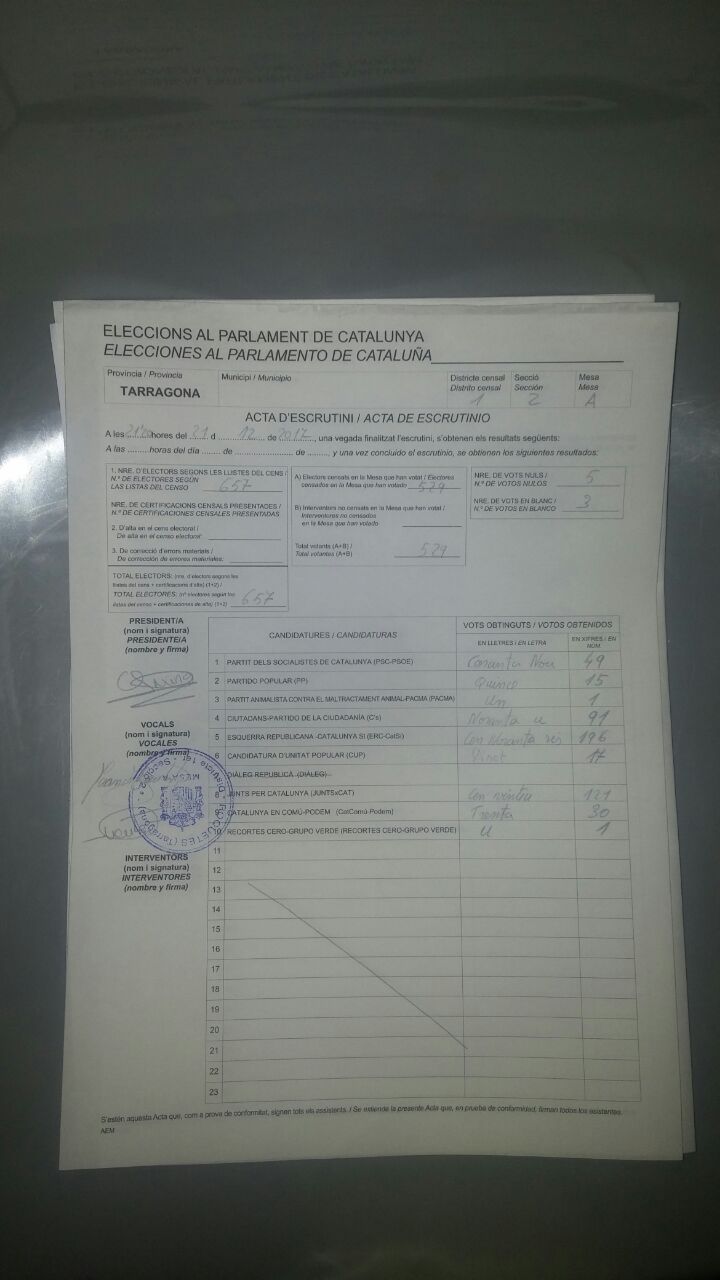 ELECCIONS AL PARLAMENT DE CATALUNYA
ELECCIONES AL PARLAMENTO DE CATALUÑA
Província / Provincia
TARRAGONA
Municipi / Municipio
Districte censal
Distrito censal
1
Secció
Sección
2
Mesa
Mesa
A
ACTA D'ESCRUTINI / ACTA DE ESCRUTINIO
A les hores del 21 d 12 de 2017, una vegada finalitzat l'escrutini, s'obtenen els resultats següents:
A las ......... horas del día ....... de ................... de ......., y una vez concluido el escrutinio, se obtienen los siguientes resultados:
1. NRE. D'ELECTORS SEGONS LES LLISTES DEL CENS /
N.º DE ELECTORES SEGÚN
LAS LISTAS DEL CENSO 657
NRE. DE CERTIFICACIONS CENSALS PRESENTADES /
N.º DE CERTIFICACIONES CENSALES PRESENTADAS
2. D'alta en el cens electoral /
De alta en el censo electoral:
3. De correcció d'errors materials /
De corrección de errores materiales:
TOTAL ELECTORS: (nre. d'electors segons les
llistes del cens + certificacions d'alta) (1+2) /
TOTAL ELECTORES: (nº electores según las
listas del censo + certificaciones de alta) (1+2) 657
A) Electors censats en la Mesa que han votat / Electores
censados en la Mesa que han votado 529
B) Interventors no censats en la Mesa que han votat /
Interventores no censados
en la Mesa que han votado
Total votants (A+B) /
Total votantes (A+B) 529
NRE. DE VOTS NULS /
N.º DE VOTOS NULOS 5
NRE. DE VOTS EN BLANC /
N.º DE VOTOS EN BLANCO 3
PRESIDENT/A
(nom i signatura)
PRESIDENTE/A
(nombre y firma)
VOCALS
(nom i signatura)
VOCALES
(nombre y firma)
INTERVENTORS
(nom i signatura)
INTERVENTORES
(nombre y firma)
CANDIDATURES / CANDIDATURAS
VOTS OBTINGUTS / VOTOS OBTENIDOS
EN LLETRES / EN LETRA
EN XIFRES / EN NÚM.
1 PARTIT DELS SOCIALISTES DE CATALUNYA (PSC-PSOE) Coranta Nou 49
2 PARTIDO POPULAR (PP) Quince 15
3 PARTIT ANIMALISTA CONTRA EL MALTRACTAMENT ANIMAL-PACMA (PACMA) un 1
4 CIUTADANS-PARTIDO DE LA CIUDADANÍA (C's) Noranta u 91
5 ESQUERRA REPUBLICANA -CATALUNYA SÍ (ERC-CatSí) 196
6 CANDIDATURA D'UNITAT POPULAR (CUP) 17
DIÀLEG REPUBLICÀ (DIÀLEG)
8 JUNTS PER CATALUNYA (JUNTSxCAT) 121
9 CATALUNYA EN COMÚ-PODEM (CatComú-Podem) Trenta 30
10 RECORTES CERO-GRUPO VERDE (RECORTES CERO-GRUPO VERDE) U 1
11
12
13
14
15
16
17
18
19
20
21
22
23
S'estén aquesta Acta que, com a prova de conformitat, signen tots els assistents. / Se extiende la presente Acta que, en prueba de conformidad, firman todos los asistentes.
AEM